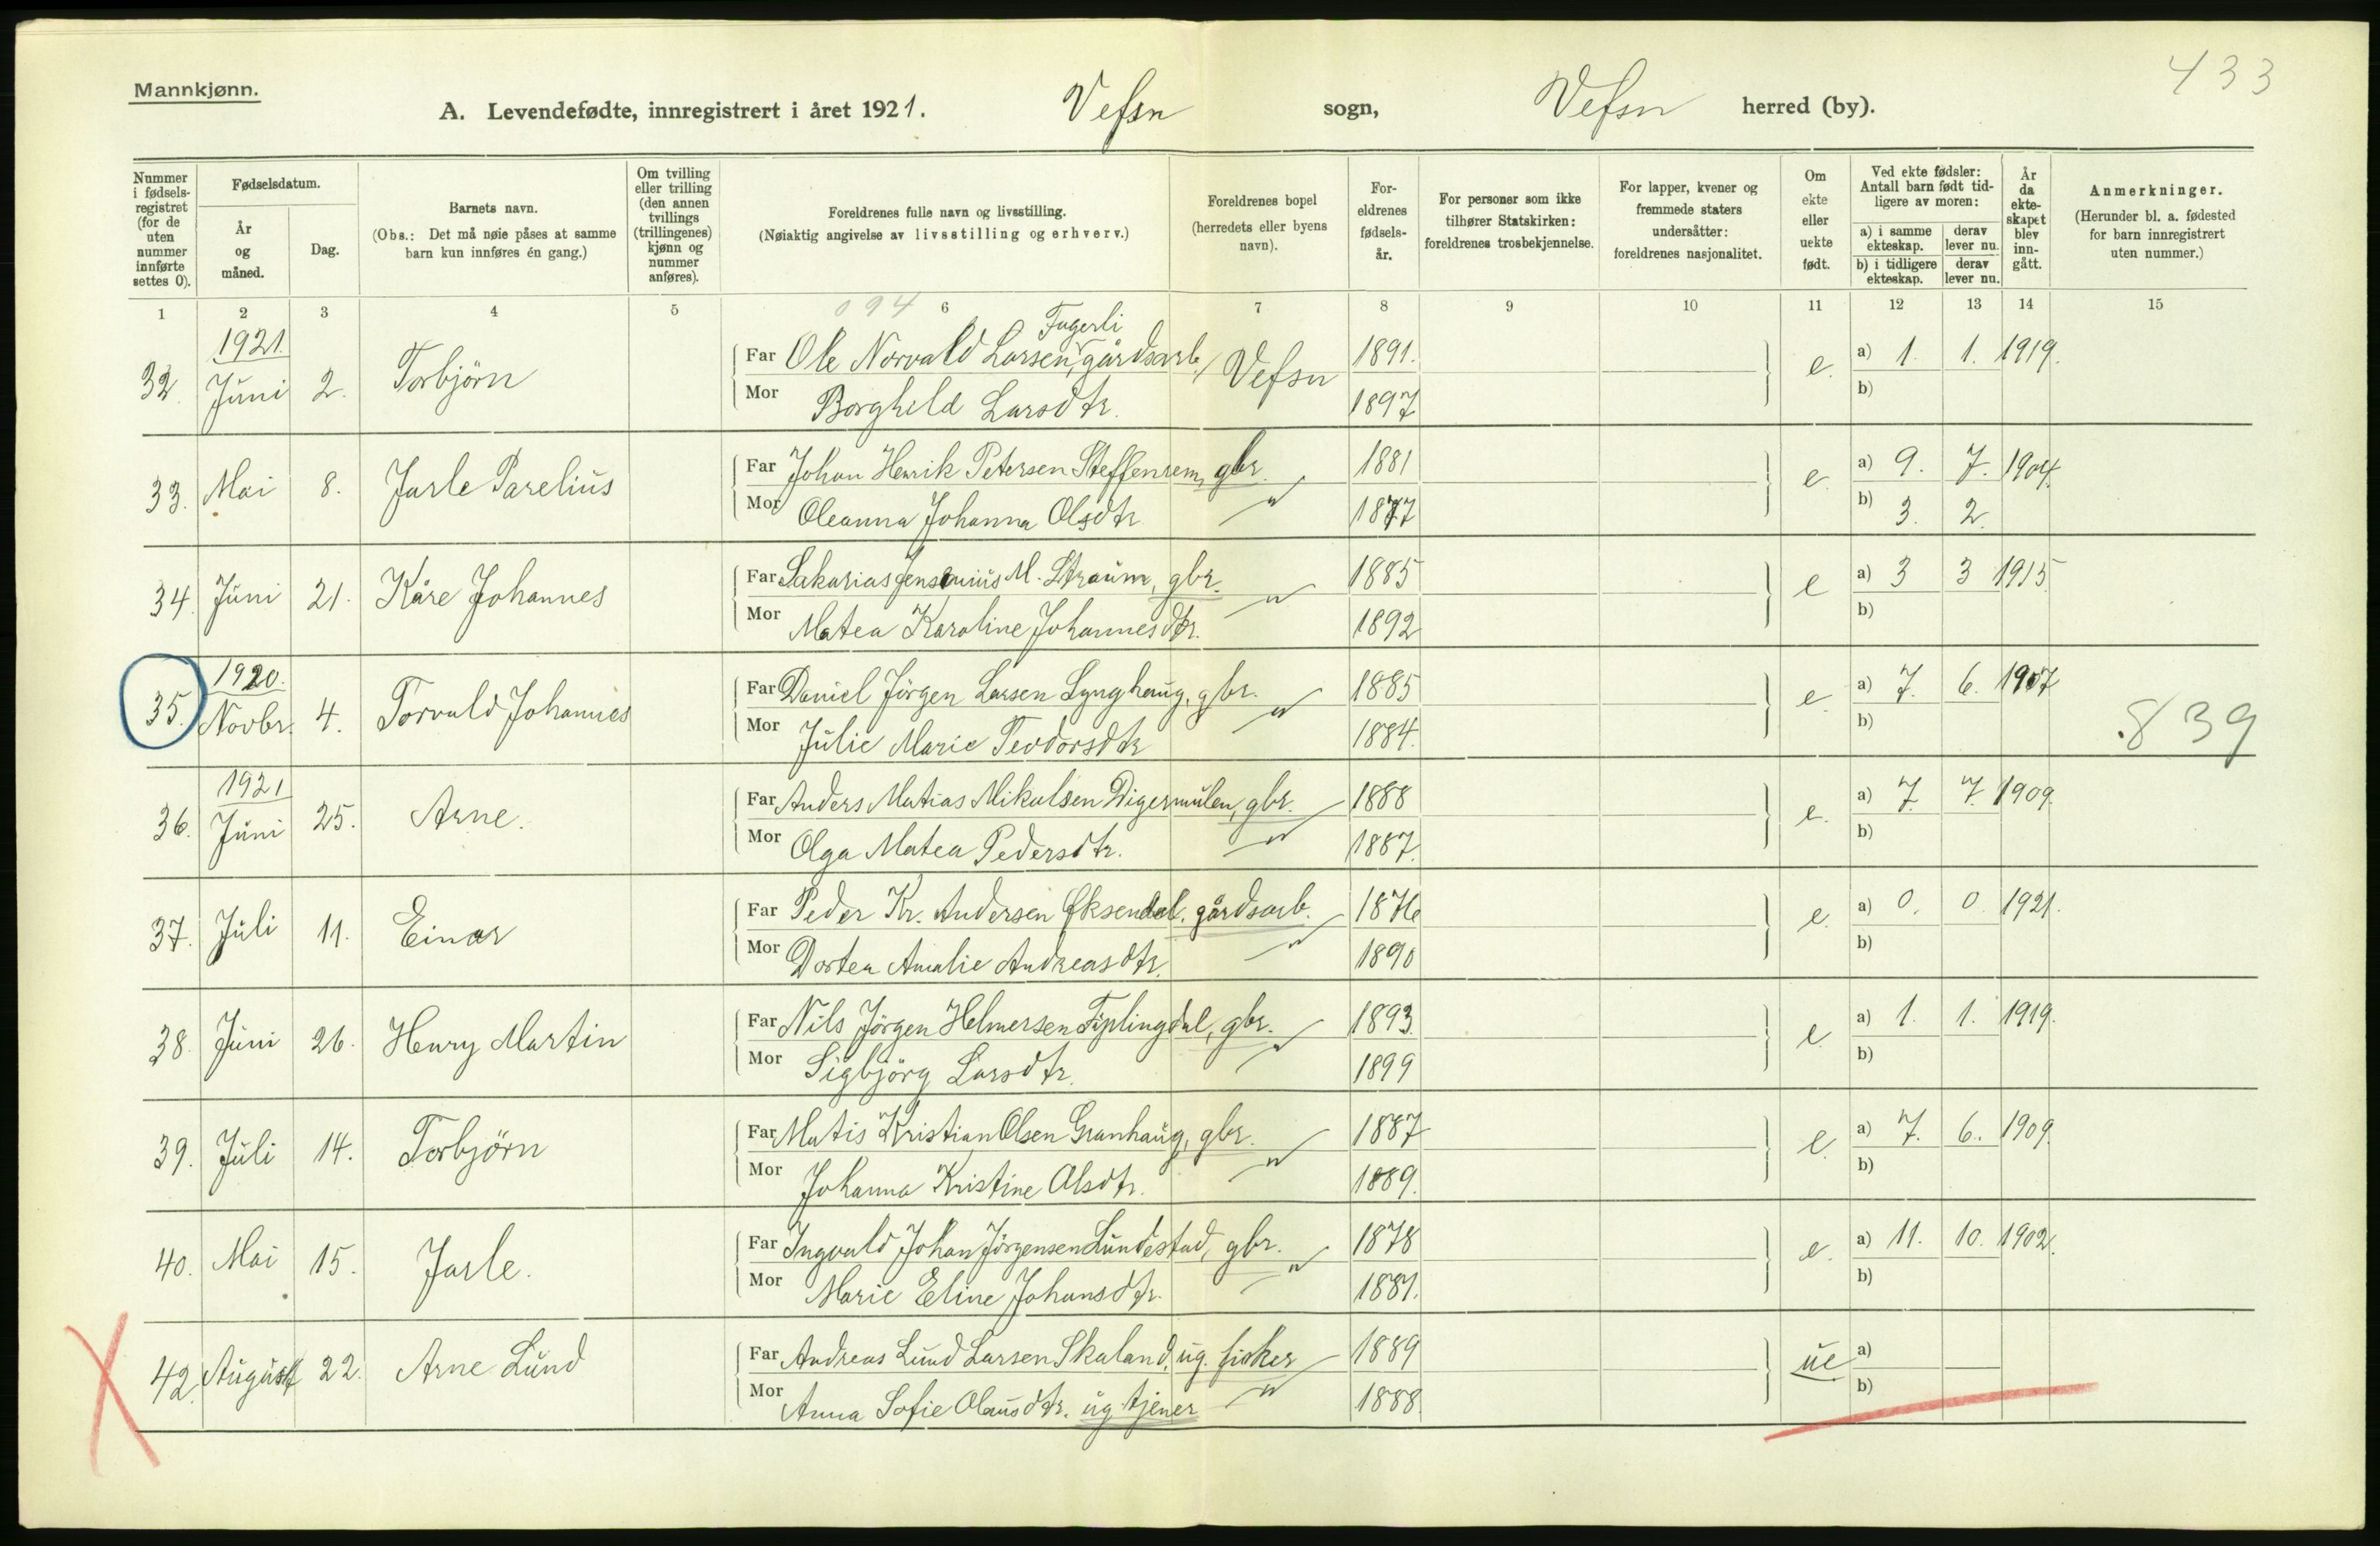 433
Mannkjønn.
A. Levendefødte, innregistrert i året 1921. Vefsn sogn, Vefsn herred (by).
Nummer i fødsels-registret (for de uten nummer innførte settes 0).
Fødselsdatum.
År og måned.
Dag.
Barnets navn.
(Obs.: Det må nøie påses at samme barn kun innføres én gang.)
Om tvilling eller trilling (den annen tvillings (trillingenes) kjønn og nummer anføres).
Foreldrenes fulle navn og livsstilling.
(Nøiaktig angivelse av livsstilling og erhverv.)
Foreldrenes bopel (herredets eller byens navn).
For-eldrenes fødsels-år.
For personer som ikke tilhører Statskirken: foreldrenes trosbekjennelse.
For lapper, kvener og fremmede staters undersåtter: foreldrenes nasjonalitet.
Om ekte eller uekte født.
Ved ekte fødsler: Antall barn født tid-ligere av moren:
a) i samme ekteskap.
derav lever nu.
b) i tidligere ekteskap.
derav lever nu.
År da ekte-skapet blev inn-gått.
Anmerkninger.
(Herunder bl. a. fødested for barn innregistrert uten nummer.)
1 2 3 4 5 6 7 8 9 10 11 12 13 14 15
094
1921
Fagerli
32. Juni 2. Torbjörn Far Ole Norvald Larsen, gårdsarb. Vefsn 1891. e. a) 1. 1. 1919.
Mor Borghild Larsdtr. 1897 b)
33. Mai 8. Jarle Parelius Far Johan Henrik Petersen Steffensrem, gbr. 1881 e. a) 9. 7. 1904.
Mor Oleanna Johanna Olsdtr. " 1877 b) 3. 2.
34. Juni 21. Kåre Johannes Far Sakarias Jensenius M. Straum, gbr. 1885 e a) 3 3 1915
Mor Matea Karoline Johannesdtr. " 1892 b)
1920.
35. Novbr. 4. Torvald Johannes Far Daniel Jörgen Larsen Lynghaug, gbr. 1885 e. a) 7. 6. 1907
Mor Julie Marie Teodorsdtr " 1884. b)
839
1921
36. Juni 25. Arne. Far Anders Matias Mikalsen Digermulen, gbr. 1888 e. a) 7. 7. 1909.
Mor Olga Matea Pedersdtr. " 1887. b)
37. Juli 11. Einar Far Peder Kr. Andersen Øksendal. gårdsarb. 1876 e. a) 0. 0 1921.
Mor Dortea Amalie Andreasdtr. " 1890 b)
38. Juni 26. Henry Martin Far Nils Jörgen Helmersen Fiplingdal, gbr. 1893 e a) 1. 1. 1919.
Mor Sigbjörg Larsdtr. " 1899 b)
39. Juli 14. Torbjörn Far Matis Kristian Olsen Granhaug, gbr. 1887 e. a) 7. 6. 1909.
Mor Johanna Kristine Olsdtr. " 1889. b)
40. Mai 15. Jarle. Far Ingvald Johan Jörgensen Lundestad, gbr. 1878 e. a) 11. 10. 1902.
Mor Marie Eline Johansdtr. " 1881. b)
42. August 22. Arne Lund Far Andreas Lund Larsen Skaland, ug. fisker 1889 ue a)
Mor Anna Sofie Olausdtr. ug tjener " 1888. b)